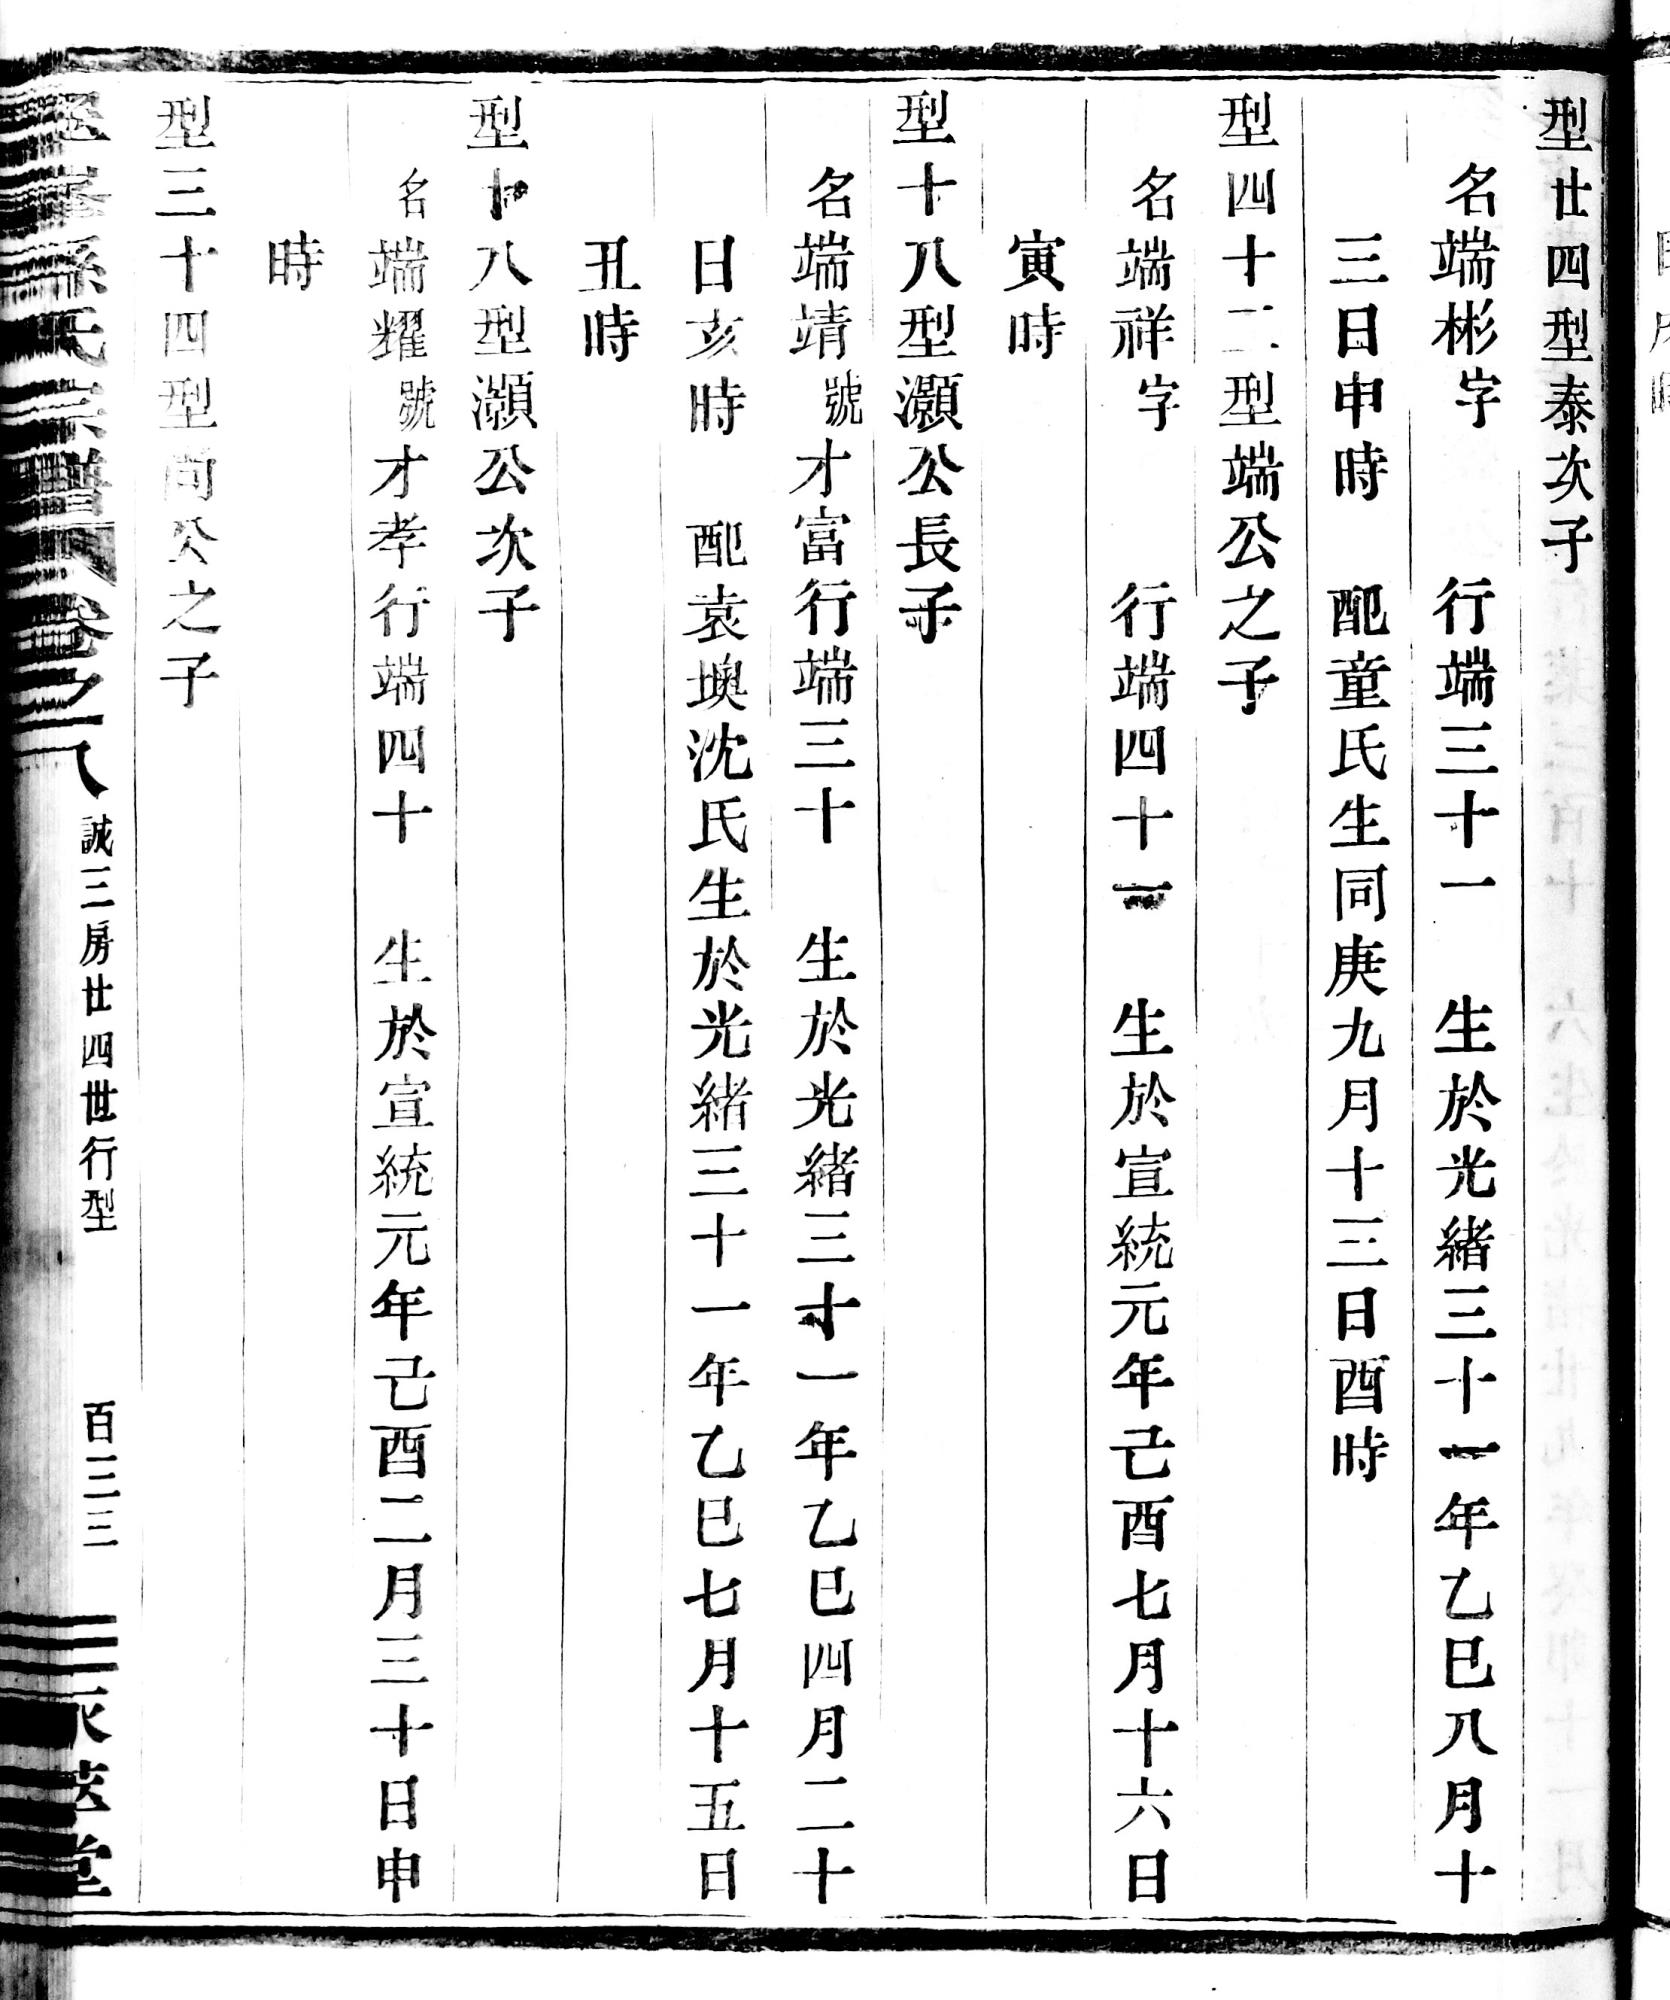 型廿四型泰次子
名端彬字 行端三十一 生於光緒三十一年乙巳八月十
三日申時 配童氏生同庚九月十三日酉時
型四十二型端公之子
名端祥字 行端四十一 生於宣統元年己酉七月十六日
寅時
型十八型灝公長子
名端靖號才富行端三十 生於光緒三十一年乙巳四月二十
日亥時 配袁墺沈氏生於光緒三十一年乙巳七月十五日
丑時
型十八型灝公次子
名端耀號才孝行端四十 生於宣統元年己酉二月三十日申
時
型三十四型尚公之子
孫氏宗譜 卷之八 誠三房廿四世行型 百三三 永 堂